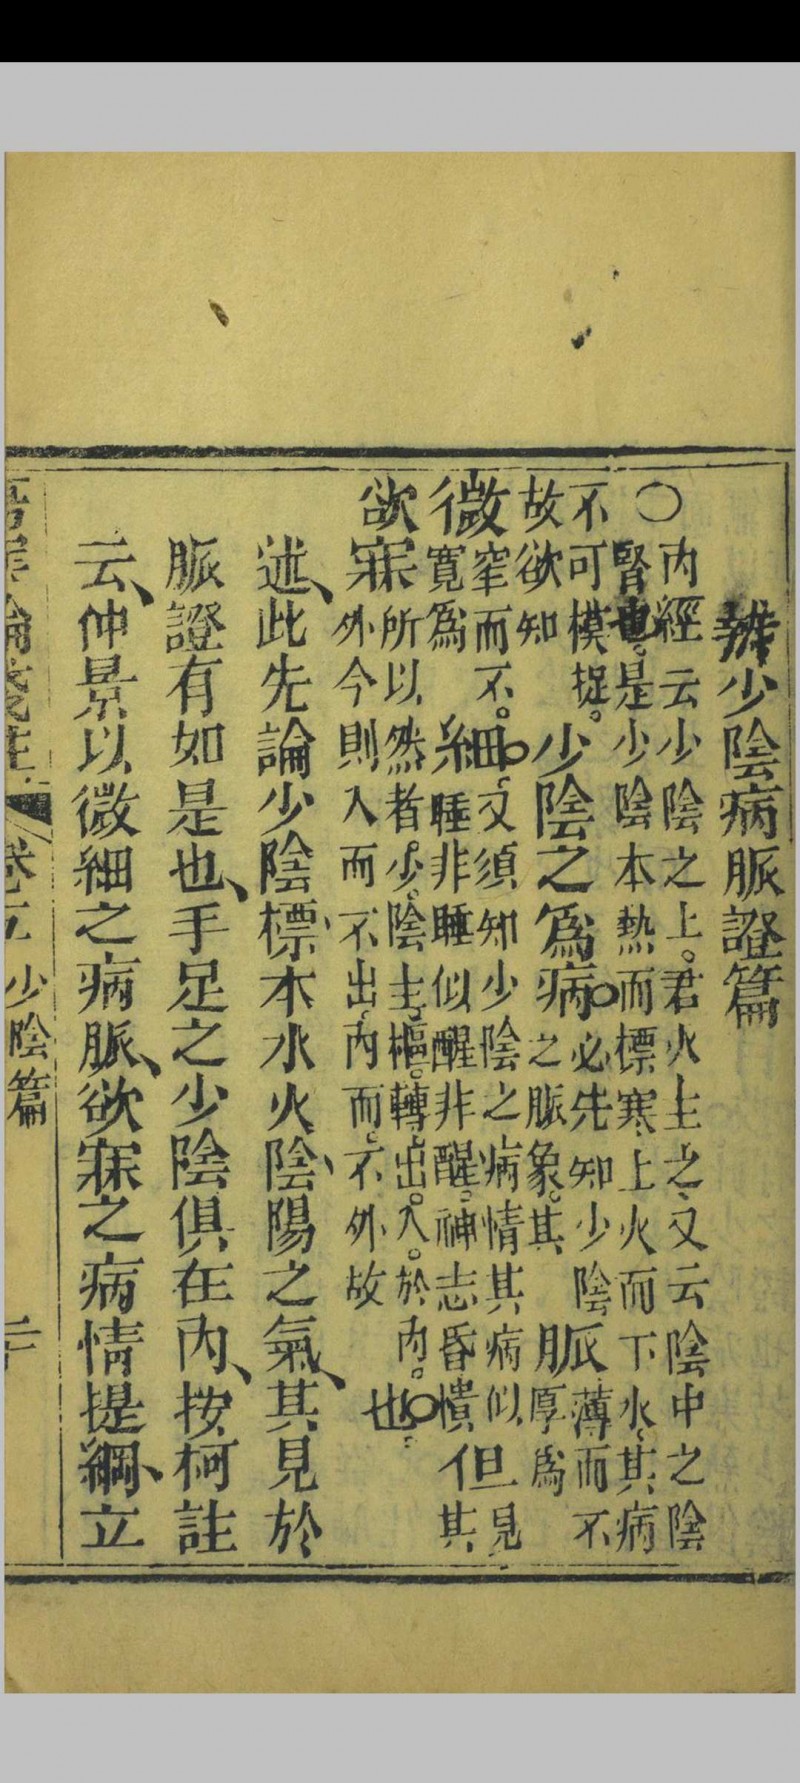 辨少陰病脈證篇
○內經云少陰之上。君火主之、又云陰中之陰
腎也。是少陰本熱而標寒、上火而下水、其病
不可模捉。故欲知少陰之為病。必先知少陰之脈象。其脈薄而不厚為
微窄而不。寬為細。又須知少陰之病情其病似睡非睡似醒非醒。神志昏憒但見其
欲寐所以然者。少陰主樞。轉出。入。於內。外今則入而不出、內而不外故也。
述、此先論少陰標、本水火、陰、陽之氣、其見於
脈證有如是也、手足之少陰俱在內、按柯註
云、仲景以微細之病脈、欲寐之病情提綱、立
少陰篇